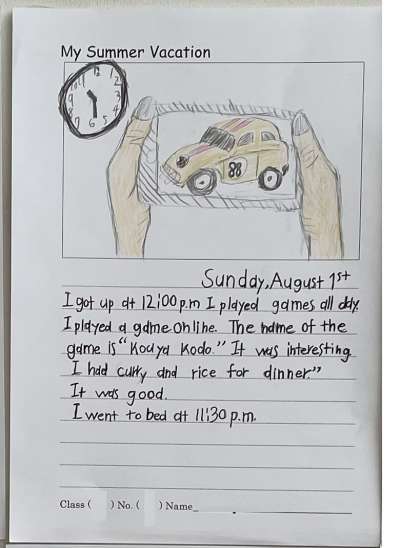 My Summer Vacation
10 11 12 1 2 3 4 5 6 7 8 9
88
Sunday, August 1st
I got up at 12:00 p.m I played games all day.
I played a game online. The name of the
game is "Kouya Kodo." It was interesting
I had curry and rice for dinner"
It was good.
I went to bed at 11:30 p.m.
Class ( ) No. ( ) Name_